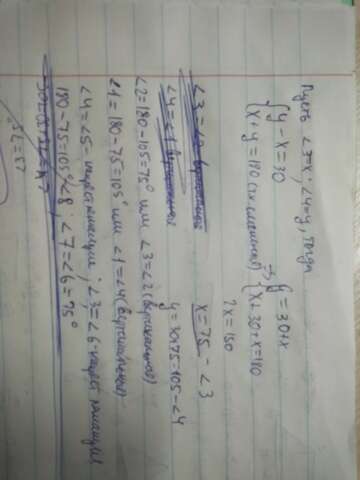 Пусть ∠3=x, ∠4=y, тогда
{y-x=30
{x+y=180 (т.к. смежные) => {y=30+x
{x+30+x=180
2x=150
x=75 - ∠3
y=30+75=105 - ∠4
∠3=∠2 вертикальные
∠4=∠1 вертикальные
∠2=180-105=75° или ∠3=∠2 (вертикальные)
∠1=180-75=105° или ∠1=∠4 (вертикальные)
∠4=∠5 ; ∠3=∠6
180-75=105° ∠8 ; ∠7=∠6=75°